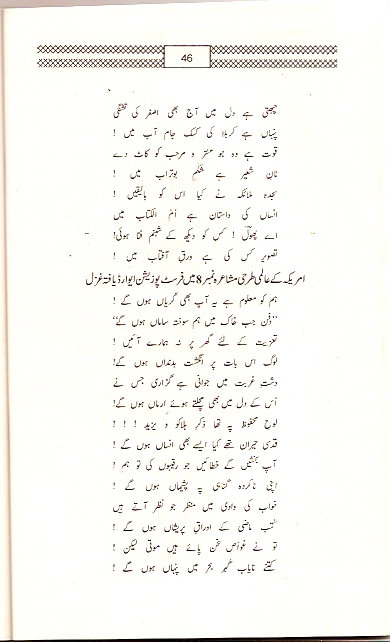 46
چبھتی ہے دل میں آج بھی اصغر کی تشنگی
پنہاں ہے کربلا کی کسک جام آب میں !
قوت ہے وہ جو عنتر و مرحب کو کاٹ دے
نانِ شعیر ہے شکمِ بوتراب میں !
سجدہ ملائکہ نے کیا اس کو بالیقیں !
انساں کی داستان ہے اُم الکتاب میں
اے پھول ! کس کو دیکھ کے شبنم فنا ہوئی!
تصویر کس کی ہے ورقِ آفتاب میں !
امریکہ کے عالمی طرحی مشاعرہ نمبر 8 میں فرسٹ پوزیشن ایوارڈ یافتہ غزل
ہم کو معلوم ہے یہ آپ بھی گریاں ہوں گے !
"دفن جب خاک میں ہم سوختہ ساماں ہوں گے"
تعزیت کے لئے گھر پر نہ ہمارے آئیں !
لوگ اس بات پر انگشت بدنداں ہوں گے!
دشتِ غربت میں جوانی ہے گزاری جس نے
اُس کے دل میں بھی مچلتے ہوئے ارماں ہوں گے!
لوحِ محفوظ پہ تھا ذکرِ ہلاکو و یزید ! ! !
قدسی حیران تھے کیا ایسے بھی انساں ہوں گے !
آپ بخشیں گے خطائیں جو رقیبوں کی تو ہم !
اپنی ناکردہ گناہی پہ پشیماں ہوں گے !
خواب کی وادی میں منظر جو نظر آتے ہیں
کتبِ ماضی کے اوراقِ پریشاں ہوں گے !
تو نے غواصِ سخن پائے ہیں موتی لیکن !
کتنے نایاب گہر بحر میں پنہاں ہوں گے !